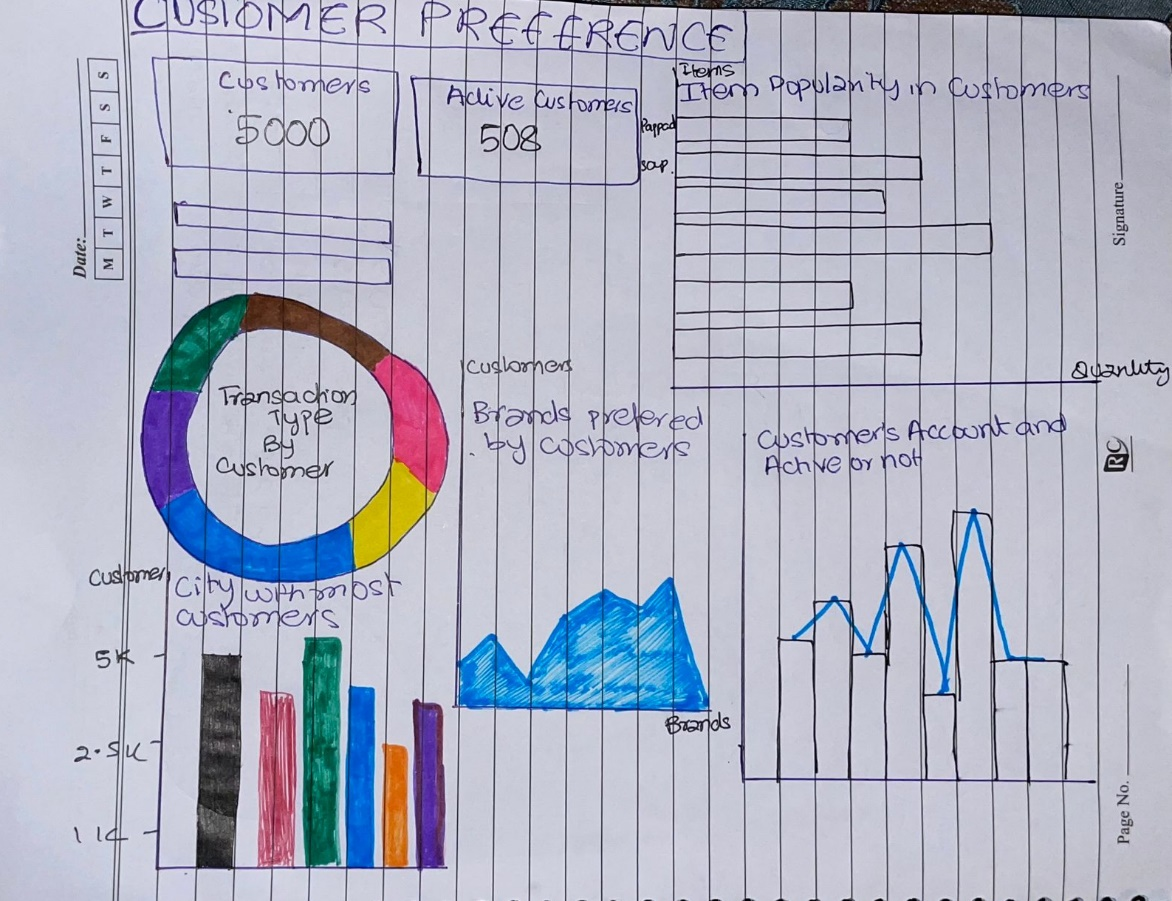 CUSTOMER PREFERENCE
Customers
5000
Active Customers
508
Items
Item Popularity in Customers
Pappad
soap.
Quantity
Date:
M T W T F S S
Signature
Transaction
Type
By
Customer
Customers
Brands prefered
by customers
Brands
Customer's Account and
Active or not
RC
Customer
City with most
customers
5K
2.5K
1K
Page No.